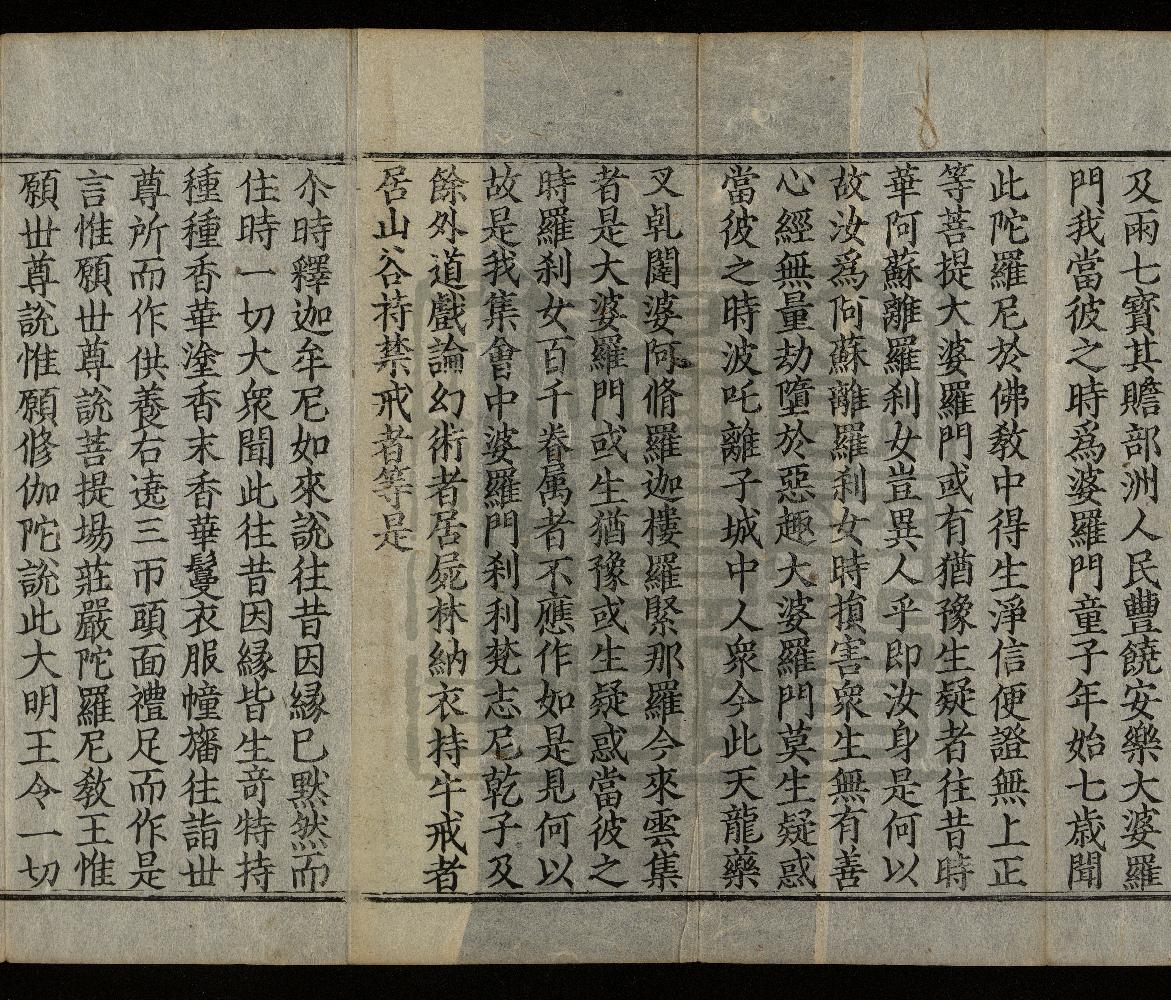 及雨七寳其贍部洲人民豐饒安樂大婆羅
門我當彼之時爲婆羅門童子年始七歲聞
此陀羅尼於佛敎中得生淨信便證無上正
等菩提大婆羅門或有猶豫生疑者往昔時
華阿蘇離羅刹女豈異人乎即汝身是何以
故汝爲阿蘇離羅刹女時損害衆生無有善
心經無量劫墮於惡趣大婆羅門莫生疑惑
當彼之時波吒離子城中人衆今此天龍藥
叉乹闥婆阿脩羅迦樓羅緊那羅今來雲集
者是大婆羅門或生猶豫或生疑惑當彼之
時羅刹女百千眷属者不應作如是見何以
故是我集會中婆羅門刹利梵志尼乾子及
餘外道戲論幻術者居屍林納衣持牛戒者
居山谷持禁戒者等是
尒時釋迦牟尼如來說往昔因縁已默然而
住時一切大衆聞此往昔因縁皆生竒特持
種種香華塗香末香華鬘衣服幢旛往詣世
尊所而作供養右遶三帀頭面禮足而作是
言惟願世尊說菩提場莊嚴陀羅尼敎王惟
願世尊說惟願修伽陀說此大明王令一切